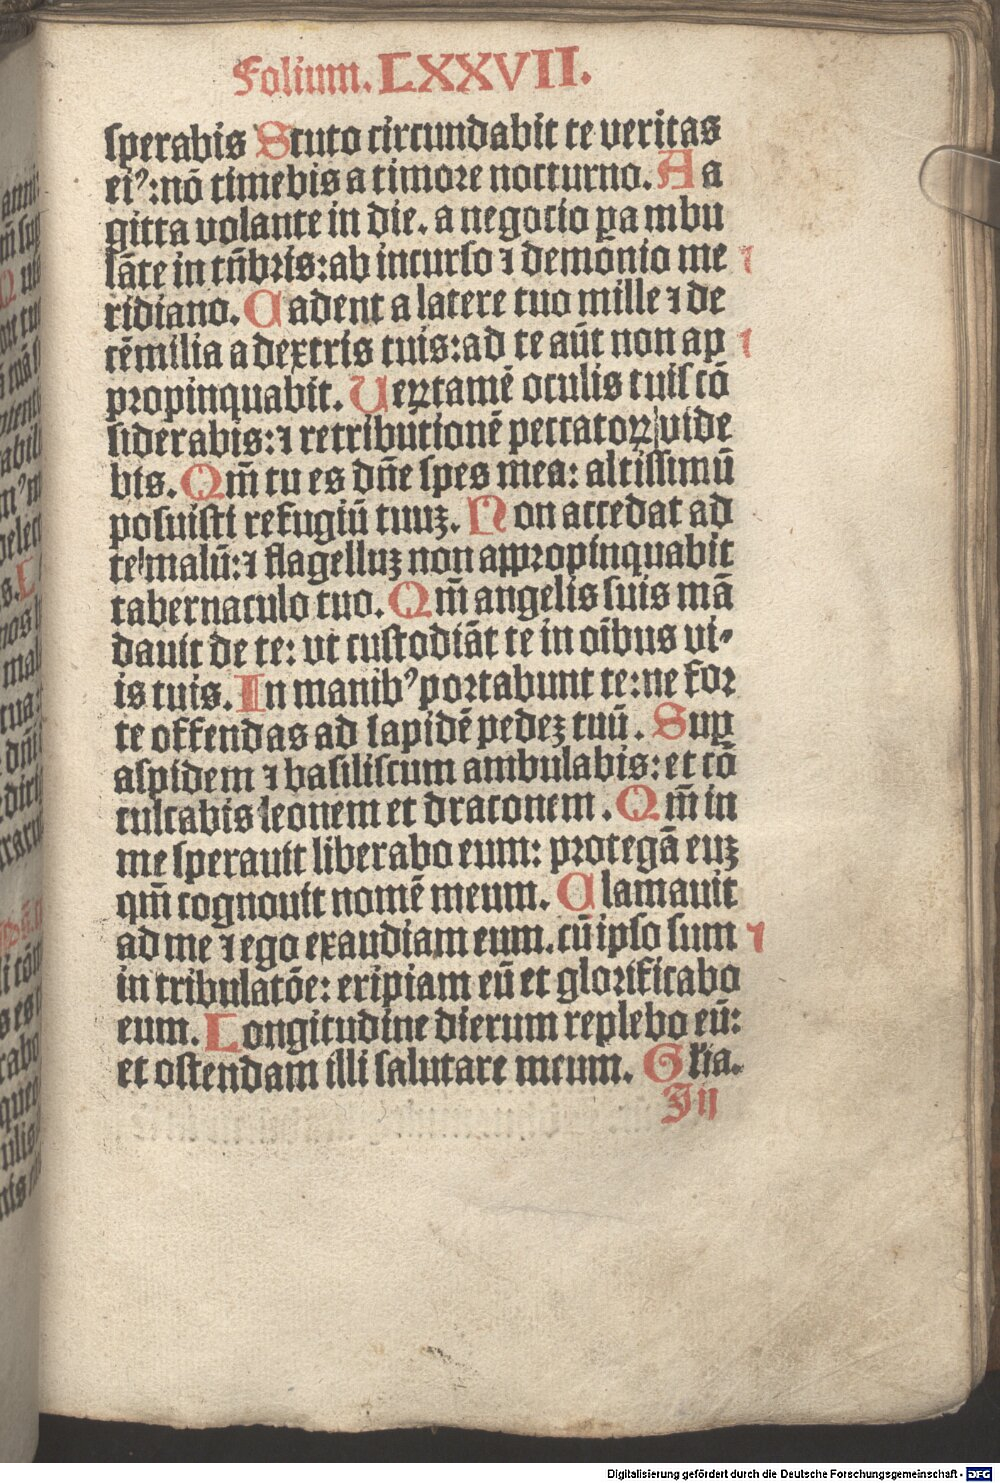 Folium. LXXVII.
ſperabis Scuto circundabit te veritas
eiꝰ: nō timebis a timore nocturno. A ſa
gitta volante in die. a negocio ꝑambu
lāte in tn̄bris: ab incurſo ⁊ demōnio me
ridiano. Cadent a latere tuo mille ⁊ de
cēmilia a dextris tuis: ad te aūt non ap
propinquabit. Ueꝝtamē oculis tuiſ cō
ſiderabis: ⁊ retributionē peccatoꝝ vide
bis. Qm̄ tu es dn̄e ſpes mea: altiſſimū
poſuiſti refugiū tuuꝫ. Non accedat ad
te malū: ⁊ flagelluꝫ non appropinquabit
tabernaculo tuo. Qm̄ angelis ſuis mā
davit de te: vt cuſtodiāt te in oībus vi-
is tuis. In manibꝰ portabunt te: ne for
te offendas ad lapidē pedeꝫ tuū. Suꝑ
aſpidem ⁊ baſiliſcum ambulabis: et cō
culcabis leonem et draconem. Qm̄ in
me ſperauit liberabo eum: protegā euꝫ
qm̄ cognouit nomē meum. Clamauit
ad me ⁊ ego exaudiam eum. cū ipſo ſum
in tribulatōe: eripiam eū et glorificabo
eum. Longitudine dierum replebo eū:
et oſtendam illi ſalutare meum. Glia.
Jij
Digitalisierung gefördert durch die Deutsche Forschungsgemeinschaft - DFG